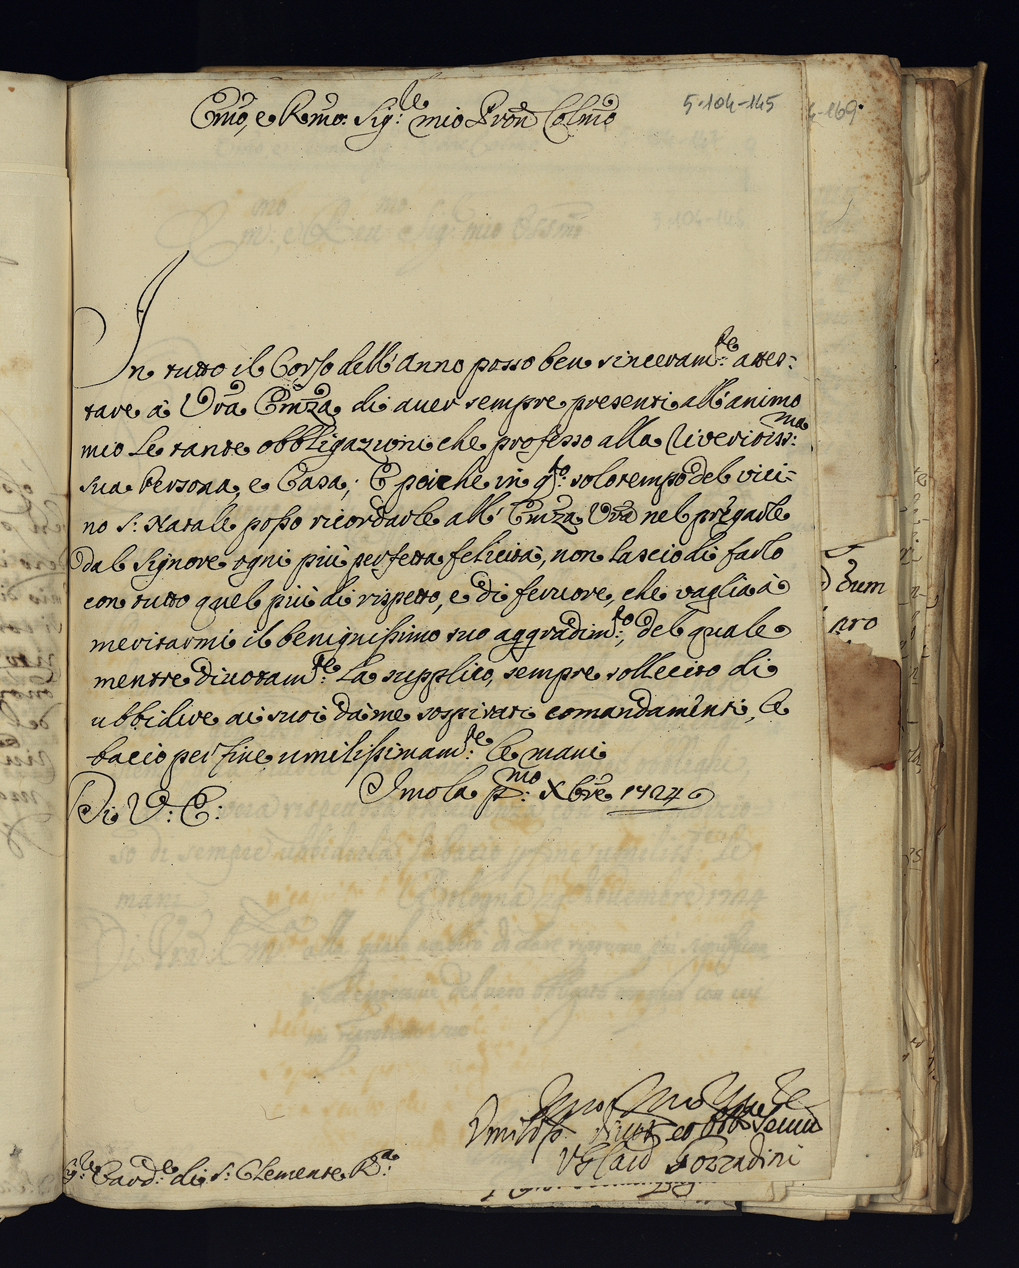 Emo, e Rmo: Sig:re mio Pron Colmo
5·104-145
4-169
In tutto il Corso dell'Anno posso ben sinceram:te attes:
tare à Vra Emza di aver sempre presenti all'animo
mio Le tante obbligazioni che professo alla Riveritiss:ma
sua Persona, e Casa; E poiche in q:to solo tempo del vici-
no S: Natale posso ricordarle all' Emza Vra nel pregarle
dal Signore ogni più perfetta felicità, non lascio di farlo
con tutto quel più di rispetto, e di fervore, che vaglia à
meritarmi il benignissimo suo aggradim:to, del quale
mentre divotam:te La supplico, sempre sollecito di
ubbidire ai suoi da me sospirati comandamenti, le
bacio per fine umilissimam:te le mani
Di V: E: Imola p:mo Xbre 1724
Umiliss. Divot. et Obb Seru
V S Card Gozzadini
Sig:re Card:le di S: Clemente R:a